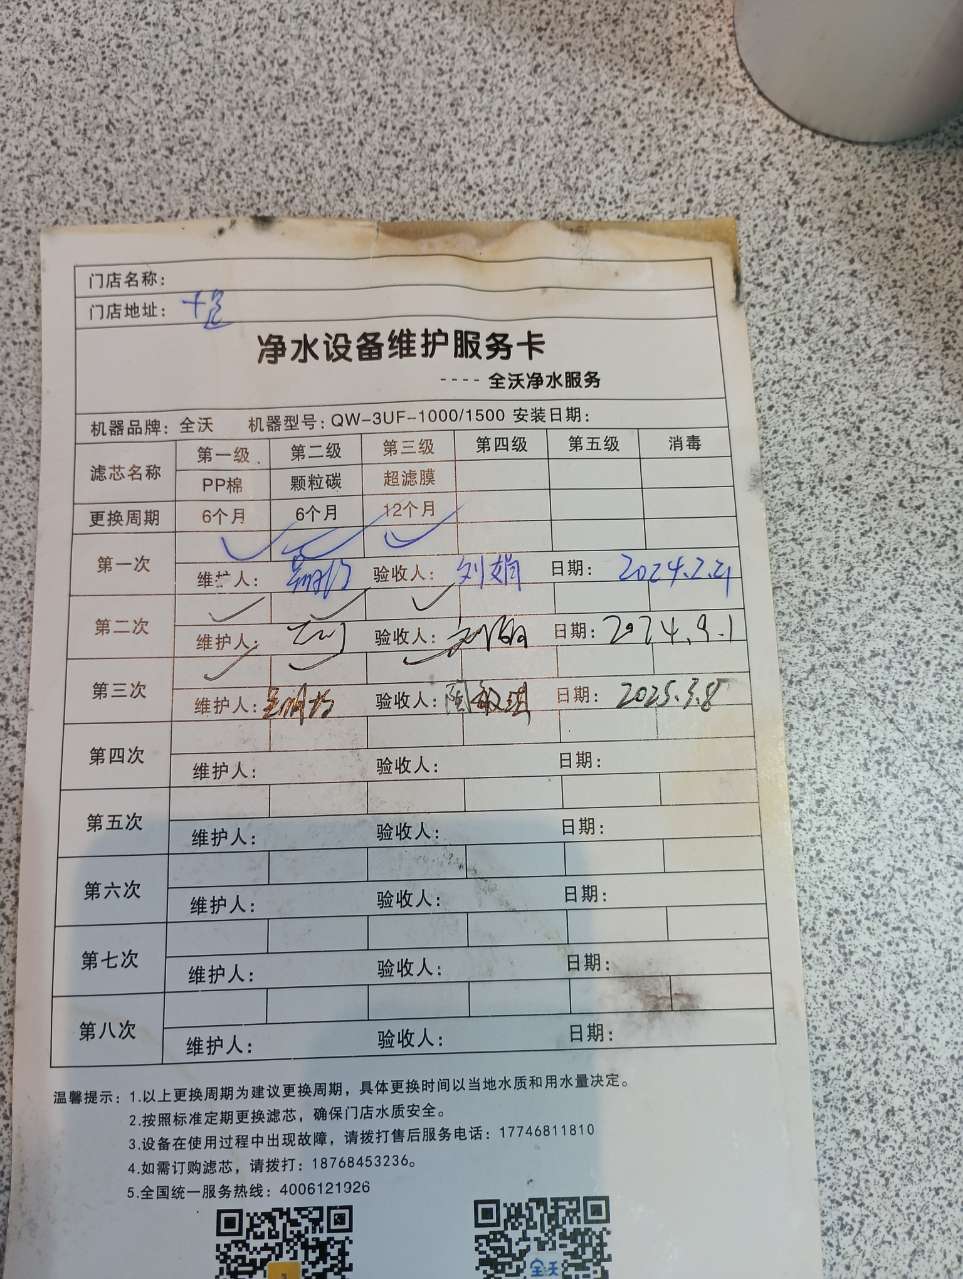 门店名称：
门店地址：十足
净水设备维护服务卡
---- 全沃净水服务
机器品牌：全沃 机器型号：QW-3UF-1000/1500 安装日期：
滤芯名称 第一级 第二级 第三级 第四级 第五级 消毒
PP棉 颗粒碳 超滤膜
更换周期 6个月 6个月 12个月
第一次
维护人： 验收人：刘娟 日期：2024.2.21
第二次
维护人： 验收人： 日期：2024.9.1
第三次
维护人： 验收人： 日期：2025.3.8
第四次
维护人： 验收人： 日期：
第五次
维护人： 验收人： 日期：
第六次
维护人： 验收人： 日期：
第七次
维护人： 验收人： 日期：
第八次
维护人： 验收人： 日期：
温馨提示：1.以上更换周期为建议更换周期，具体更换时间以当地水质和用水量决定。
2.按照标准定期更换滤芯，确保门店水质安全。
3.设备在使用过程中出现故障，请拨打售后服务电话：17746811810
4.如需订购滤芯，请拨打：18768453236。
5.全国统一服务热线：4006121926
全沃